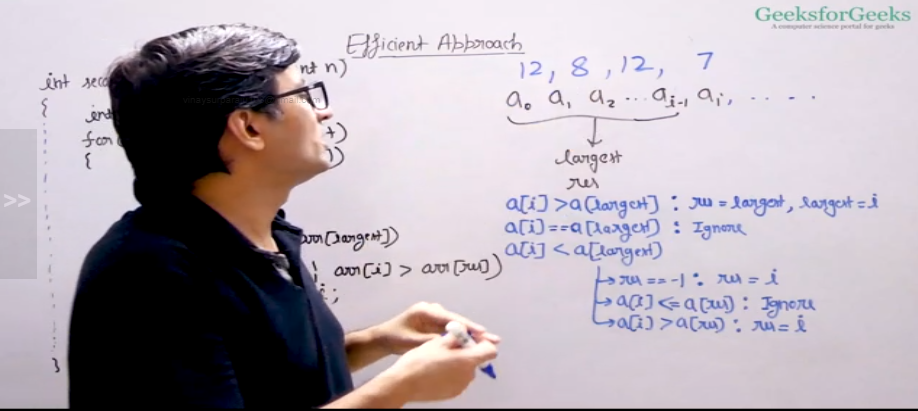 GeeksforGeeks
A computer science portal for geeks
Efficient Approach
int n)
int
{
{
arr[largest])
arr[i] > arr[res])
}
12, 8, 12, 7
a₀ a₁ a₂ ... aᵢ₋₁ aᵢ, . . . .
largest
res
a[i] > a[largest] : res = largest, largest = i
a[i] == a[largest] : Ignore
a[i] < a[largest]
→ res == -1 : res = i
→ a[i] <= a[res] : Ignore
→ a[i] > a[res] : res = i
>>